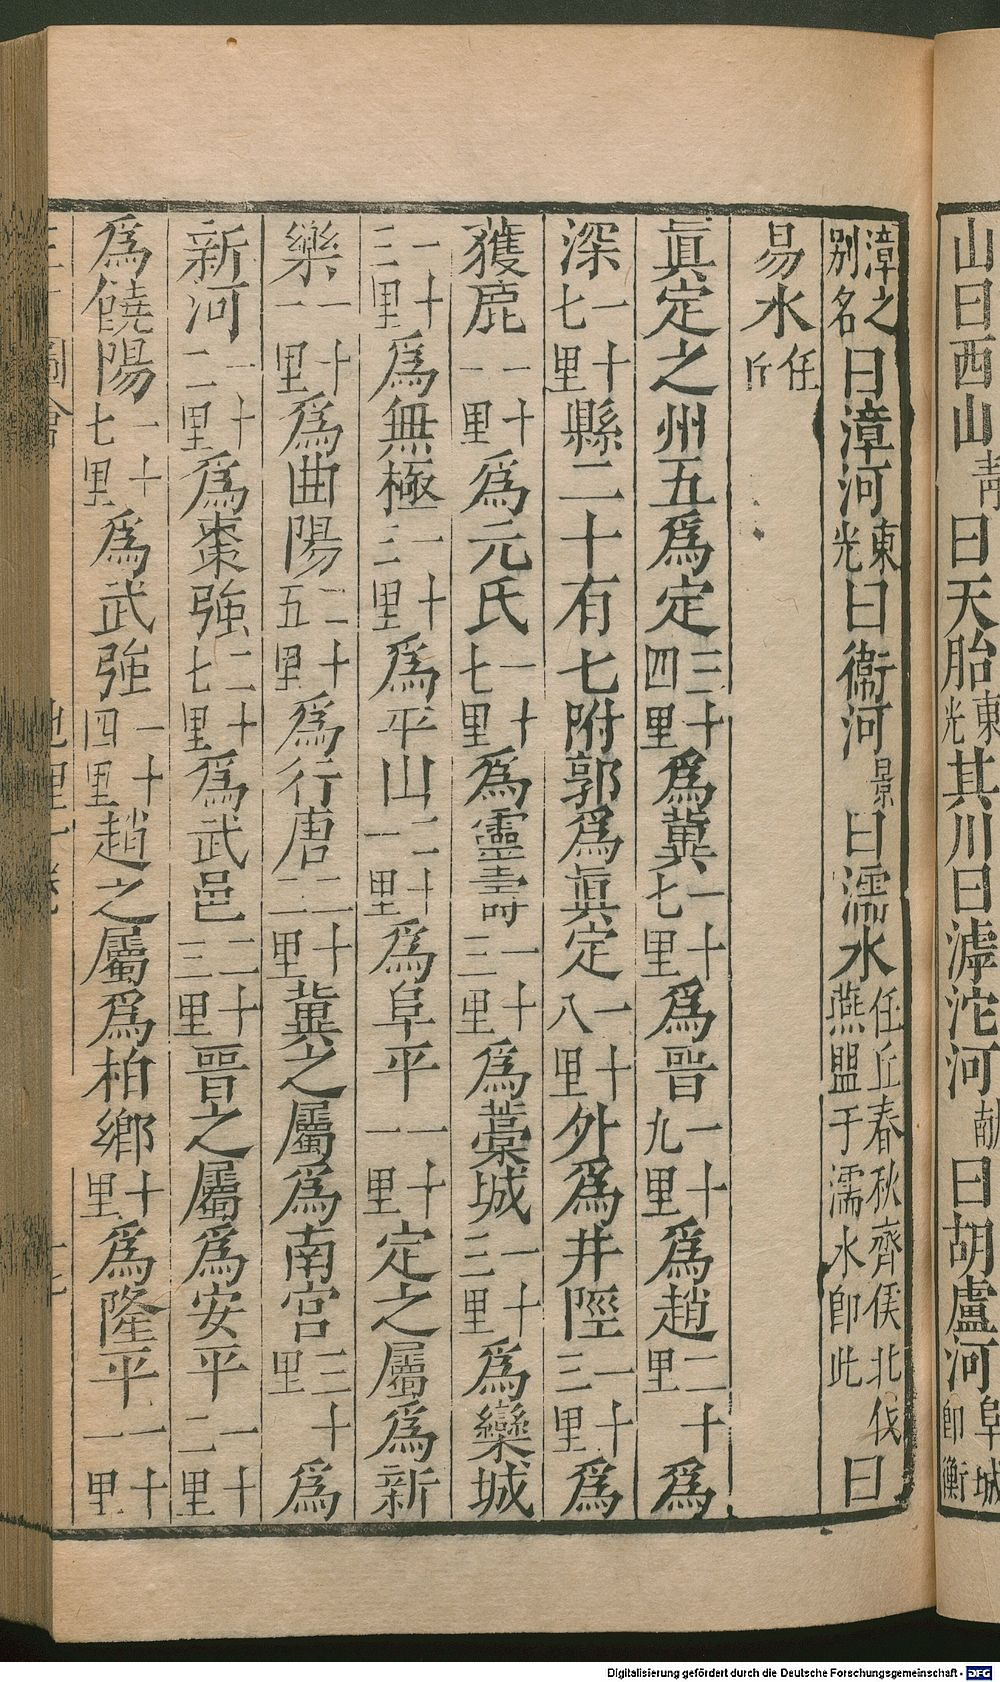 山曰西山青曰天胎東光其川曰滹沱河献曰胡盧河阜城卽衡
漳之別名曰漳河東光曰衞河景曰濡水任丘春秋齊侯北伐燕盟于濡水卽此曰
易水任丘
眞定之州五爲定三十四里爲兾一十七里爲晉一十九里爲趙二十里爲
深一十七里縣二十有七附郭爲眞定一十八里外爲井陘一十三里爲
獲鹿一十一里爲元氏一十七里爲靈壽一十三里爲藁城一十三里爲欒城
一十三里爲無極一十三里爲平山二十一里爲阜平一十一里定之屬爲新
樂一十一里爲曲陽二十五里爲行唐二十二里兾之屬爲南宮三十里爲
新河一十二里爲棗強二十七里爲武邑二十三里晉之屬爲安平一十二里
爲饒陽一十七里爲武強一十四里趙之屬爲柏鄉十里爲隆平一十一里
圖會 地理一卷
Digitalisierung gefördert durch die Deutsche Forschungsgemeinschaft - DFG